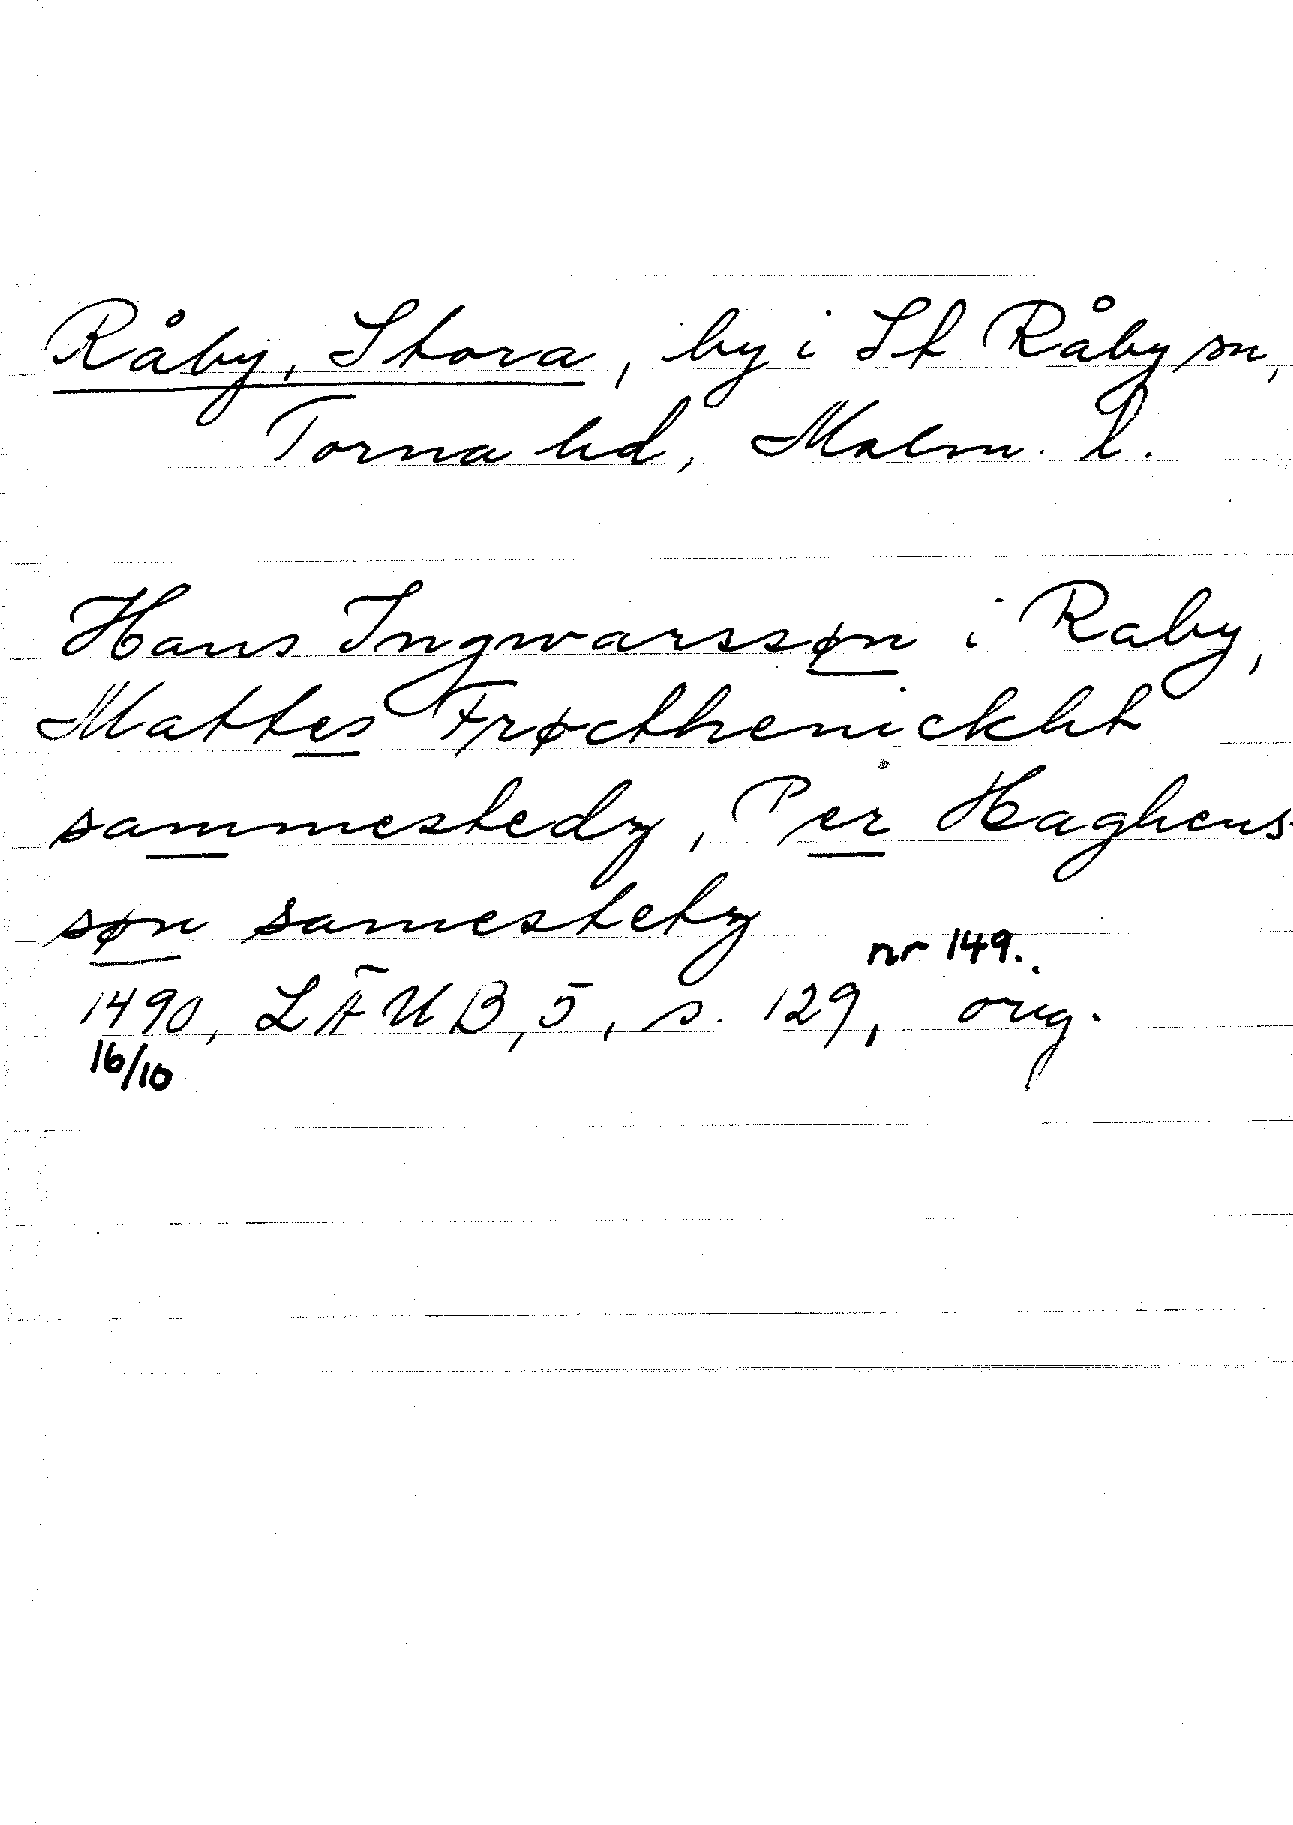 Råby, Stora, by i St Råby sn,
Torna hd, Malm. l.
Hans Ingwarssøn i Raby,
Mattes Frøcthenickht
sammestedz, Per Haghens
søn samestetz
nr 149.
1490, LÄUB, 5, s. 129, orig.
16/10